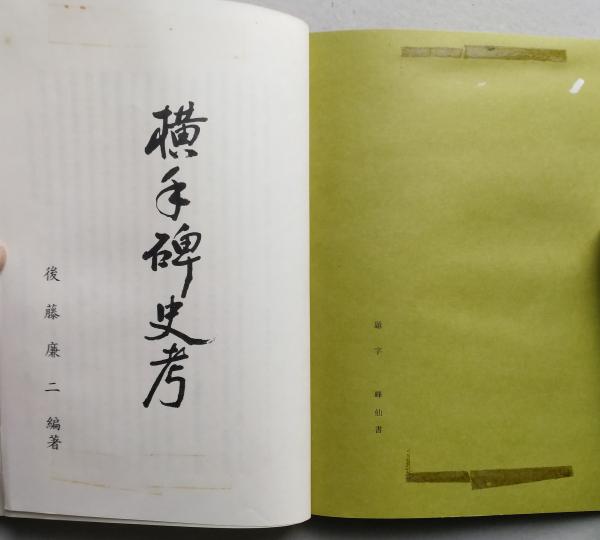 題字 峰仙書
横手碑史考
後藤廉二編著